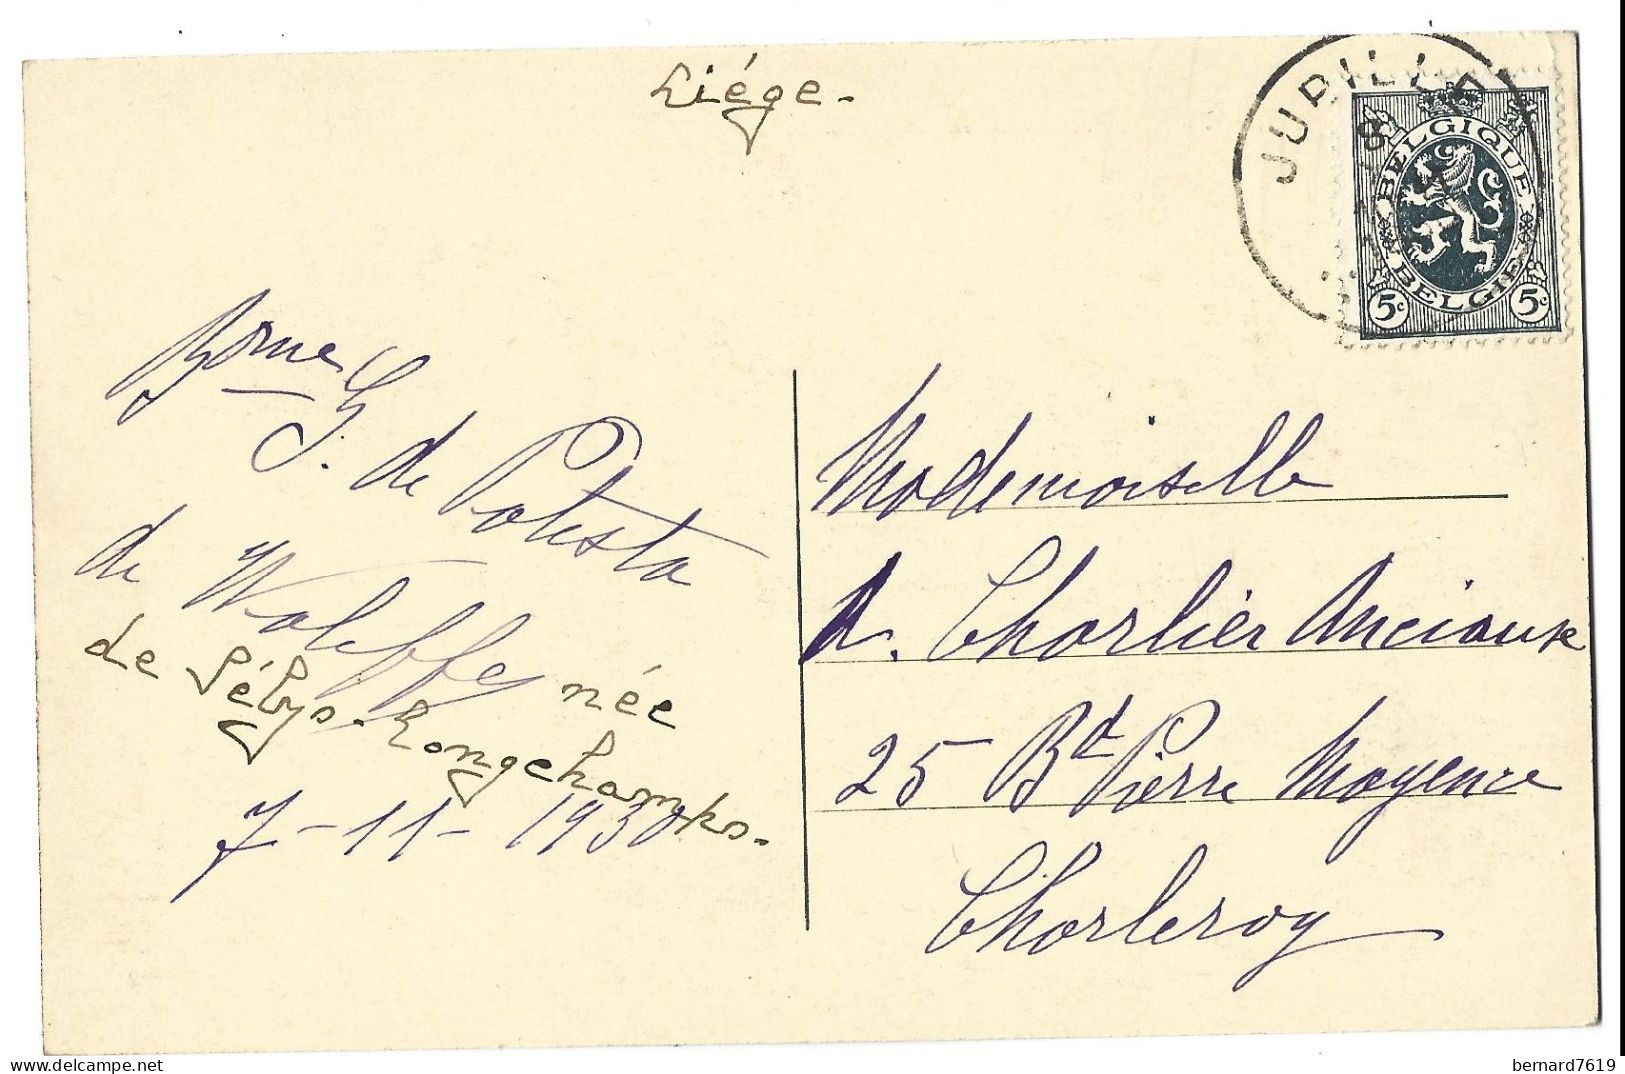 Liége.
JUPILLE
BELGIQUE
BELGIE
5c 5c
Bonne G. de Potesta
de Waleffe née
de Sélys-Longchamps.
7-11-1930
Mademoiselle
A. Charlier Anciaux
25 Bd Pierre Mayence
Charleroy
bernard7619